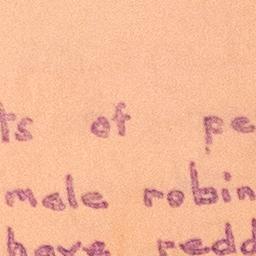 ts of pe
male robin
have redd